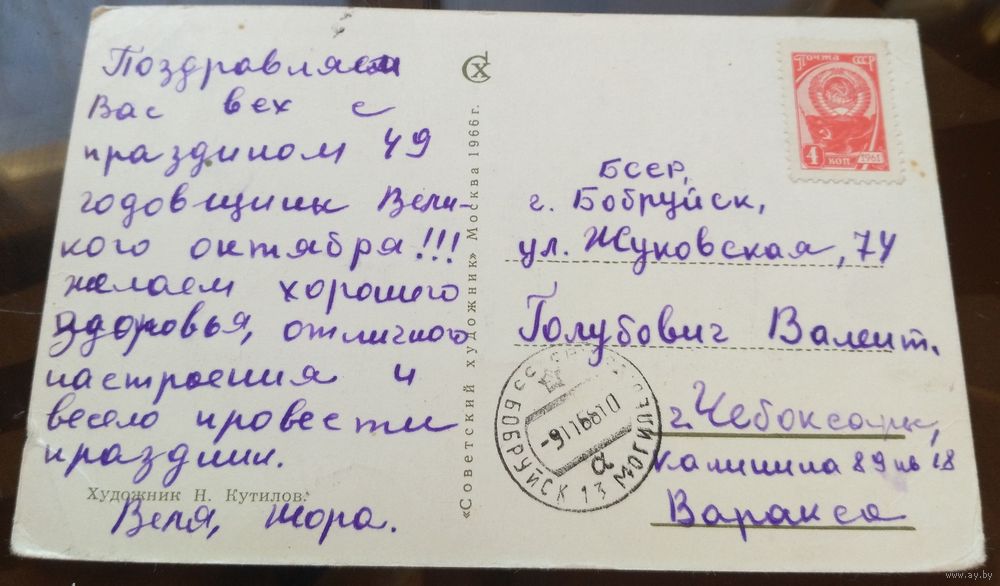 Поздравляем
Вас вех с
праздником 49
годовщины Вели-
кого октября!!!
желаем хорошего
здоровья, отличного
настроения и
весело провести
праздник.
Художник Н. Кутилов.
Веля, Жора.
«Советский художник» Москва 1966 г.
СХ
Почта СССР
4 КОП 1961
БССР,
г. Бобруйск,
ул. Жуковская, 74
Голубович Валент.
г. Чебоксары,
Калинина 89 кв 18
Варакса
БОБРУЙСК 13 МОГИЛ
-91166810
а
www.ay.by